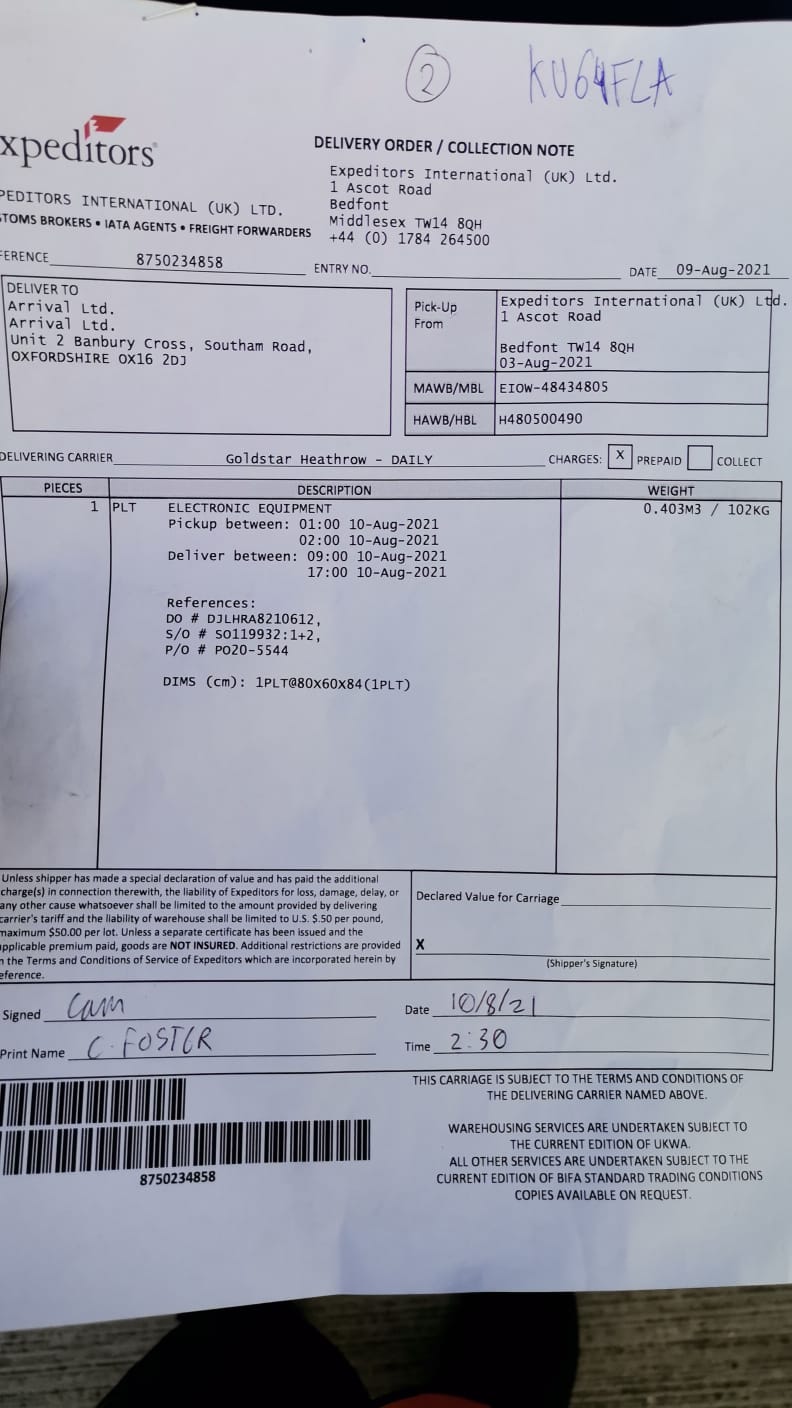 2 KU64FLA
xpeditors
PEDITORS INTERNATIONAL (UK) LTD.
TOMS BROKERS • IATA AGENTS • FREIGHT FORWARDERS
DELIVERY ORDER / COLLECTION NOTE
Expeditors International (UK) Ltd.
1 Ascot Road
Bedfont
Middlesex TW14 8QH
+44 (0) 1784 264500
FERENCE 8750234858 ENTRY NO. DATE 09-Aug-2021
DELIVER TO
Arrival Ltd.
Arrival Ltd.
Unit 2 Banbury Cross, Southam Road,
OXFORDSHIRE OX16 2DJ
Pick-Up From
Expeditors International (UK) Ltd.
1 Ascot Road
Bedfont TW14 8QH
03-Aug-2021
MAWB/MBL EIOW-48434805
HAWB/HBL H480500490
DELIVERING CARRIER Goldstar Heathrow - DAILY CHARGES: X PREPAID COLLECT
PIECES DESCRIPTION WEIGHT
1 PLT ELECTRONIC EQUIPMENT 0.403M3 / 102KG
Pickup between: 01:00 10-Aug-2021
02:00 10-Aug-2021
Deliver between: 09:00 10-Aug-2021
17:00 10-Aug-2021
References:
DO # DJLHRA8210612,
S/O # SO119932:1+2,
P/O # PO20-5544
DIMS (cm): 1PLT@80X60X84(1PLT)
Unless shipper has made a special declaration of value and has paid the additional
charge(s) in connection therewith, the liability of Expeditors for loss, damage, delay, or
any other cause whatsoever shall be limited to the amount provided by delivering
carrier's tariff and the liability of warehouse shall be limited to U.S. $.50 per pound,
maximum $50.00 per lot. Unless a separate certificate has been issued and the
applicable premium paid, goods are NOT INSURED. Additional restrictions are provided
n the Terms and Conditions of Service of Expeditors which are incorporated herein by
eference.
Declared Value for Carriage
X
(Shipper's Signature)
Signed Cam
Date 10/8/21
Print Name C. FOSTER
Time 2:30
8750234858
THIS CARRIAGE IS SUBJECT TO THE TERMS AND CONDITIONS OF
THE DELIVERING CARRIER NAMED ABOVE.
WAREHOUSING SERVICES ARE UNDERTAKEN SUBJECT TO
THE CURRENT EDITION OF UKWA.
ALL OTHER SERVICES ARE UNDERTAKEN SUBJECT TO THE
CURRENT EDITION OF BIFA STANDARD TRADING CONDITIONS
COPIES AVAILABLE ON REQUEST.